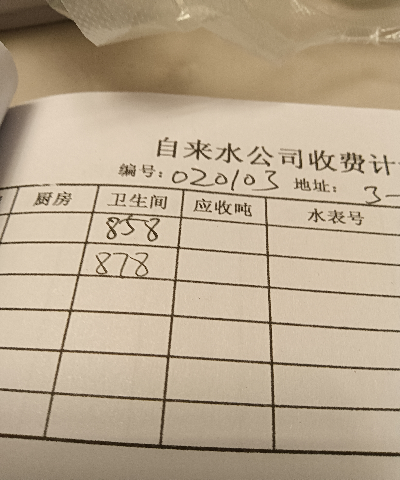 自来水公司收费计
编号: 020103 地址: 3-
厨房 卫生间 应收吨 水表号
858
878